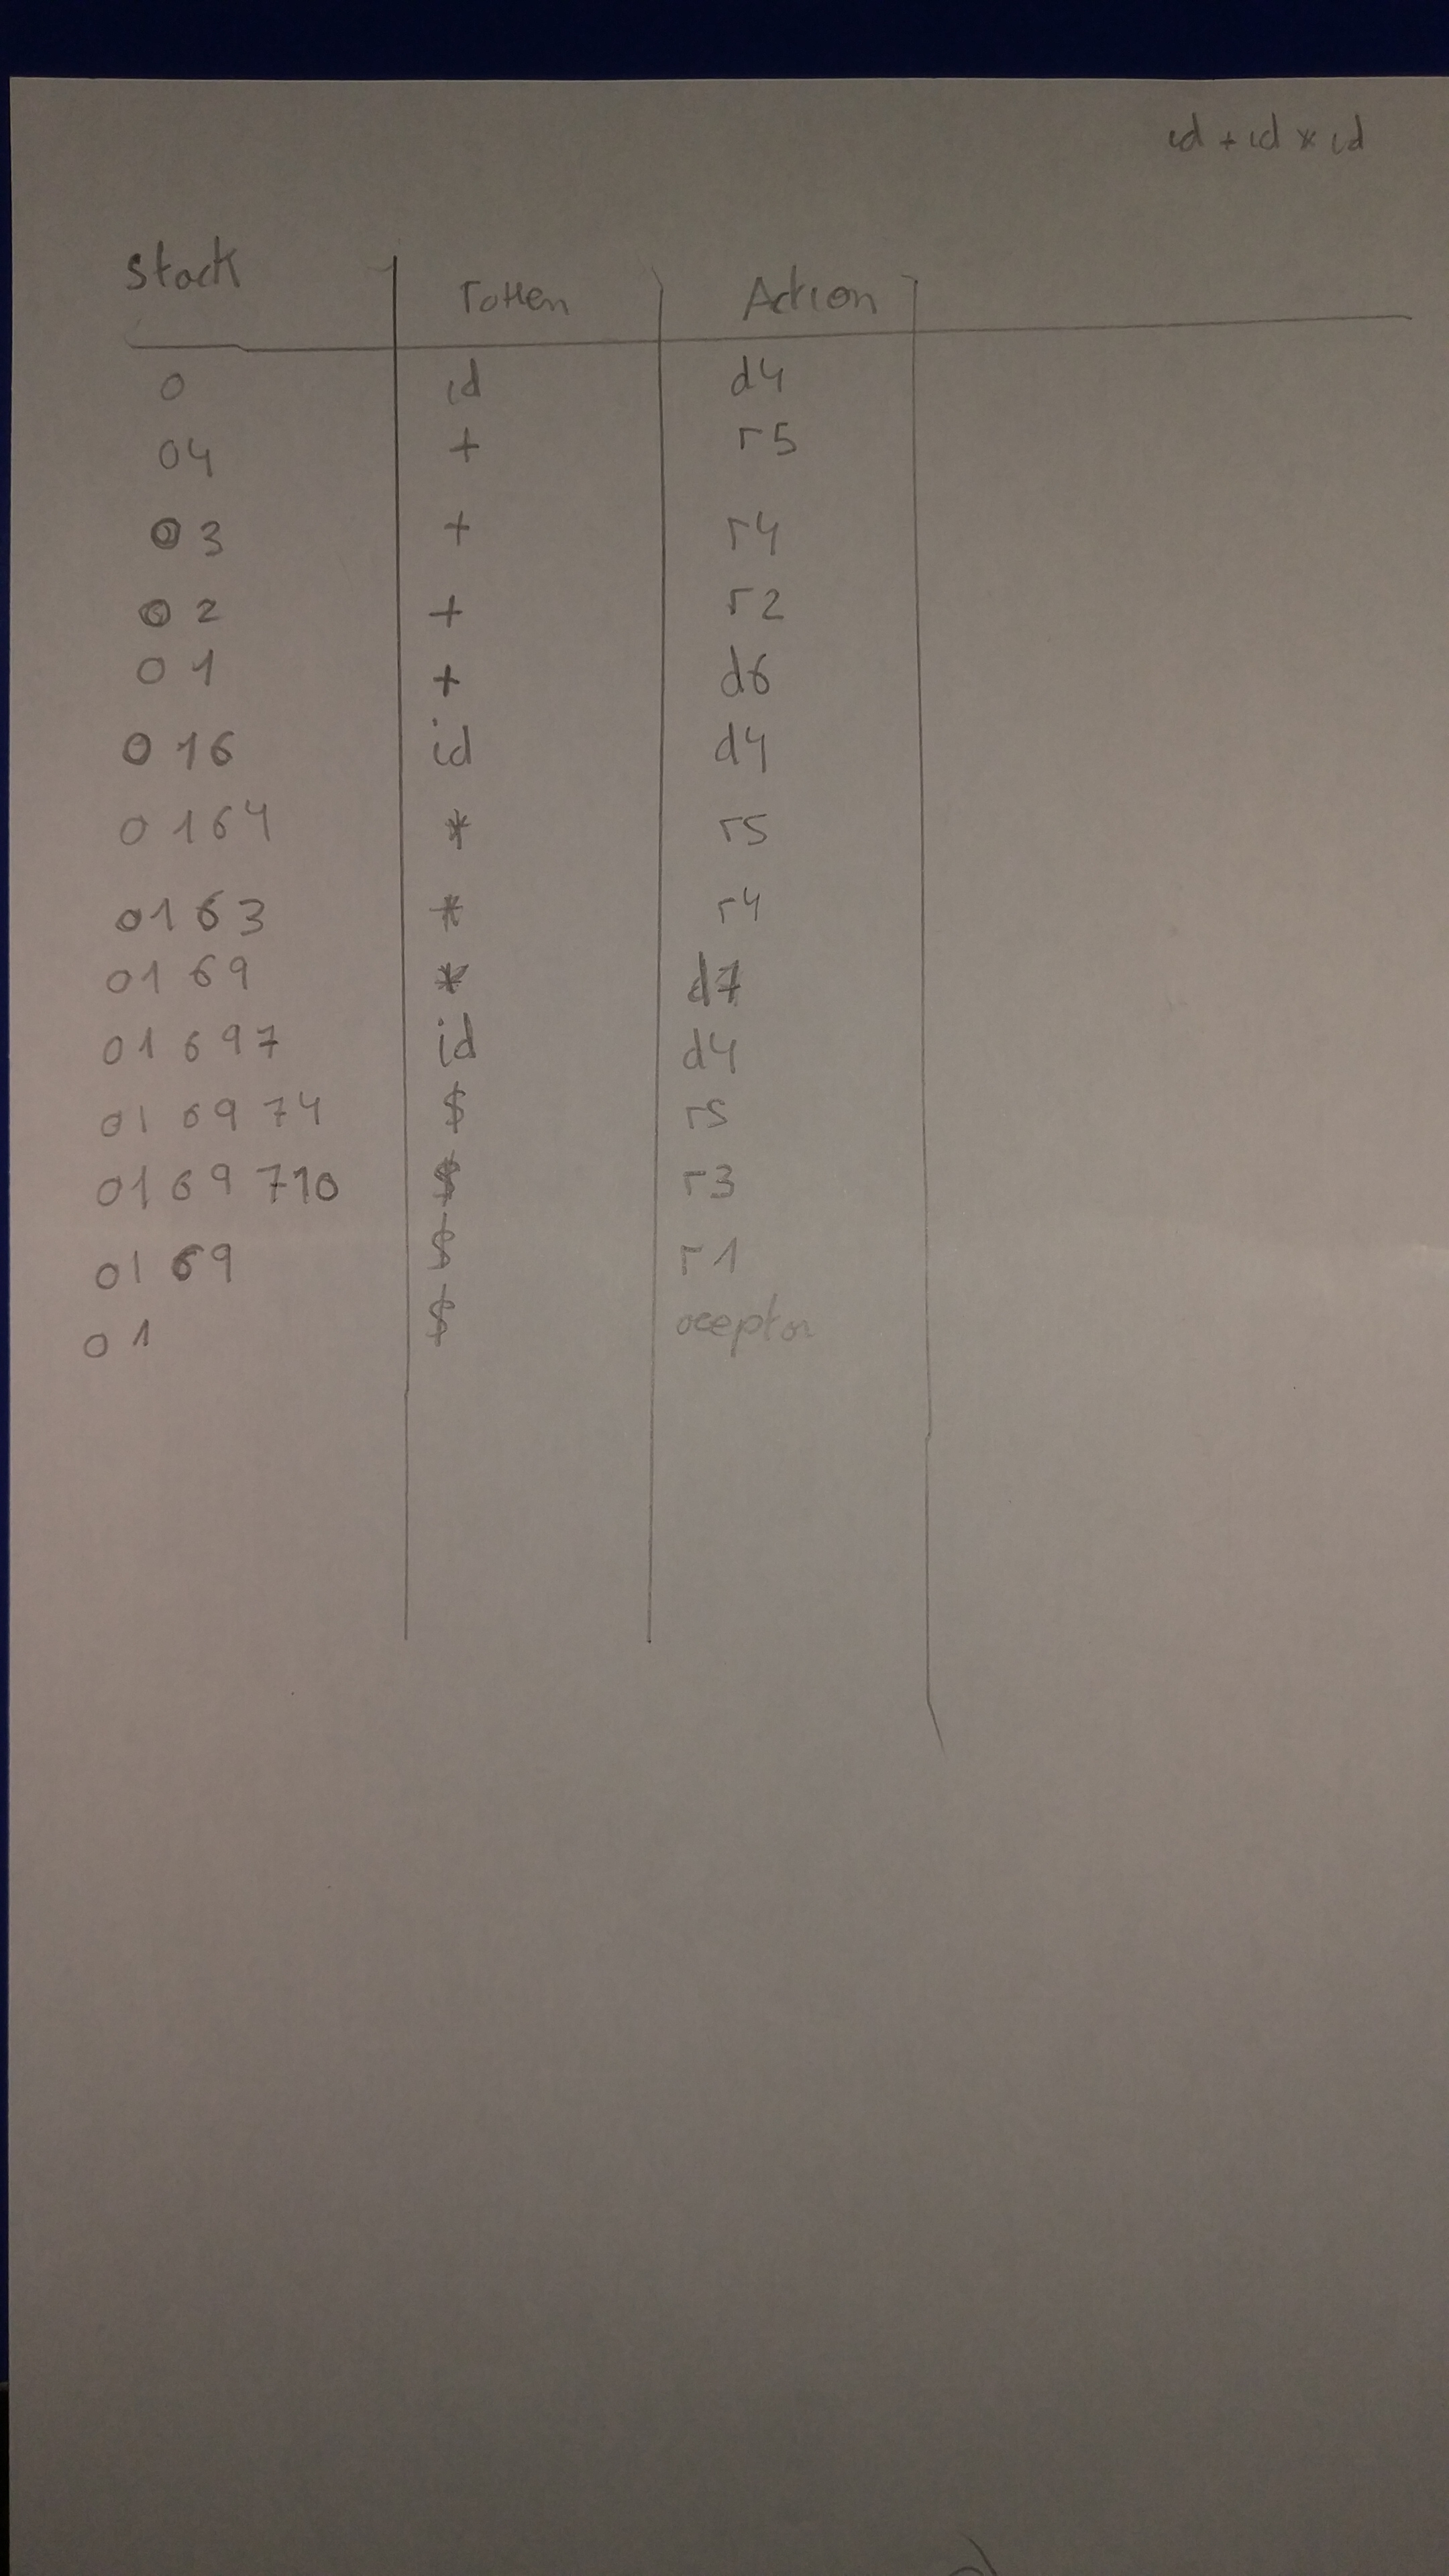 id + id * id
Stack Token Action
0 id d4
04 + r5
0 3 + r4
0 2 + r2
0 1 + d6
0 16 id d4
0 164 * r5
0163 * r4
01 69 * d7
01 697 id d4
01 69 74 $ r5
01 69 710 $ r3
01 69 $ r1
0 1 $ aceptar